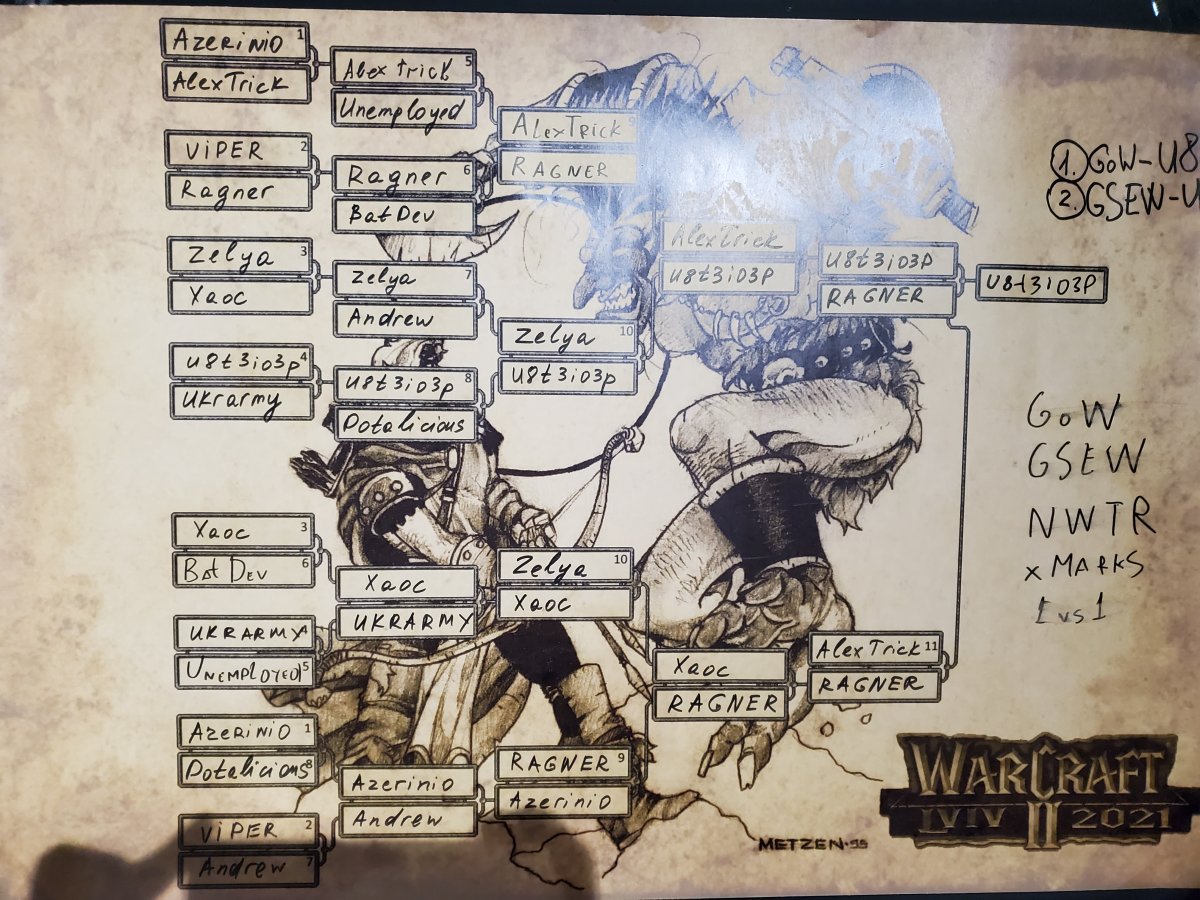 Azerinio 1
AlexTrick
Alex trick 5
Unemployed
ViPER 2
Ragner
AlexTrick 9
RAGNER
Ragner 6
BatDev
Zelya 3
Xaoc
Zelya 7
Andrew
AlexTrick
U8t3iO3P
U8t3iO3P
RAGNER
U8t3iO3P
U8t3io3p 4
Ukrarmy
U8t3io3p 8
Potalicious
Zelya 10
U8t3io3p
1. GoW-U8
2. GSEW-U
GoW
GSEW
NWTR
x MARKS
1 vs 1
Xaoc 3
Bat Dev 6
Xaoc
UKRARMY
Zelya 10
Xaoc
UKRARMY 4
UNEMPLOYED 5
Xaoc
RAGNER
AlexTrick 11
RAGNER
Azerinio 1
Potalicious 8
Azerinio
Andrew
RAGNER 9
Azerinio
ViPER 2
Andrew 7
METZEN·95
WARCRAFT
LVIV II 2021